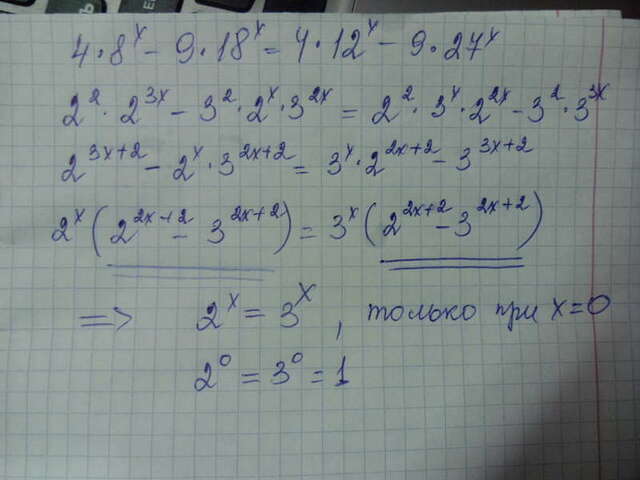 4·8^x − 9·18^x = 4·12^x − 9·27^x
2^2 · 2^{3x} − 3^2 · 2^x · 3^{2x} = 2^2 · 3^x · 2^{2x} − 3^2 · 3^{3x}
2^{3x+2} − 2^x · 3^{2x+2} = 3^x · 2^{2x+2} − 3^{3x+2}
2^x (2^{2x+2} − 3^{2x+2}) = 3^x (2^{2x+2} − 3^{2x+2})
=> 2^x = 3^x, только при x=0
2^0 = 3^0 = 1